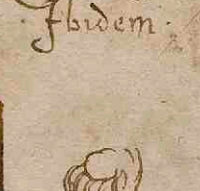 · Ibidem ·